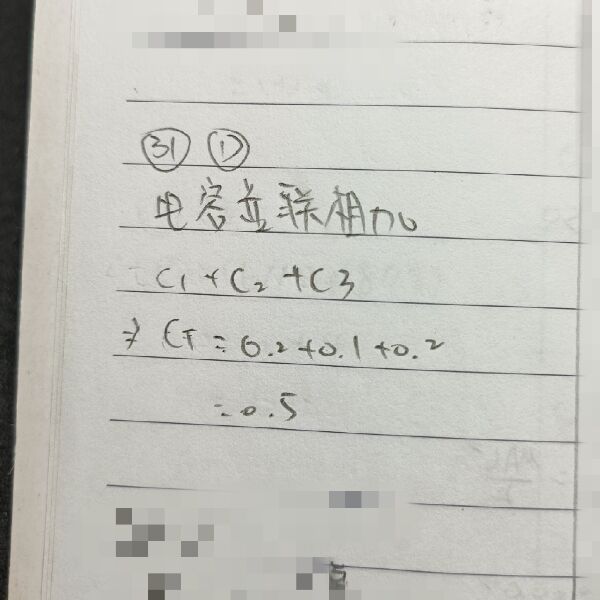 ㉛ ①
电容並联相加
C1 + C2 + C3
⇒ CT = 0.2+0.1+0.2
= 0.5